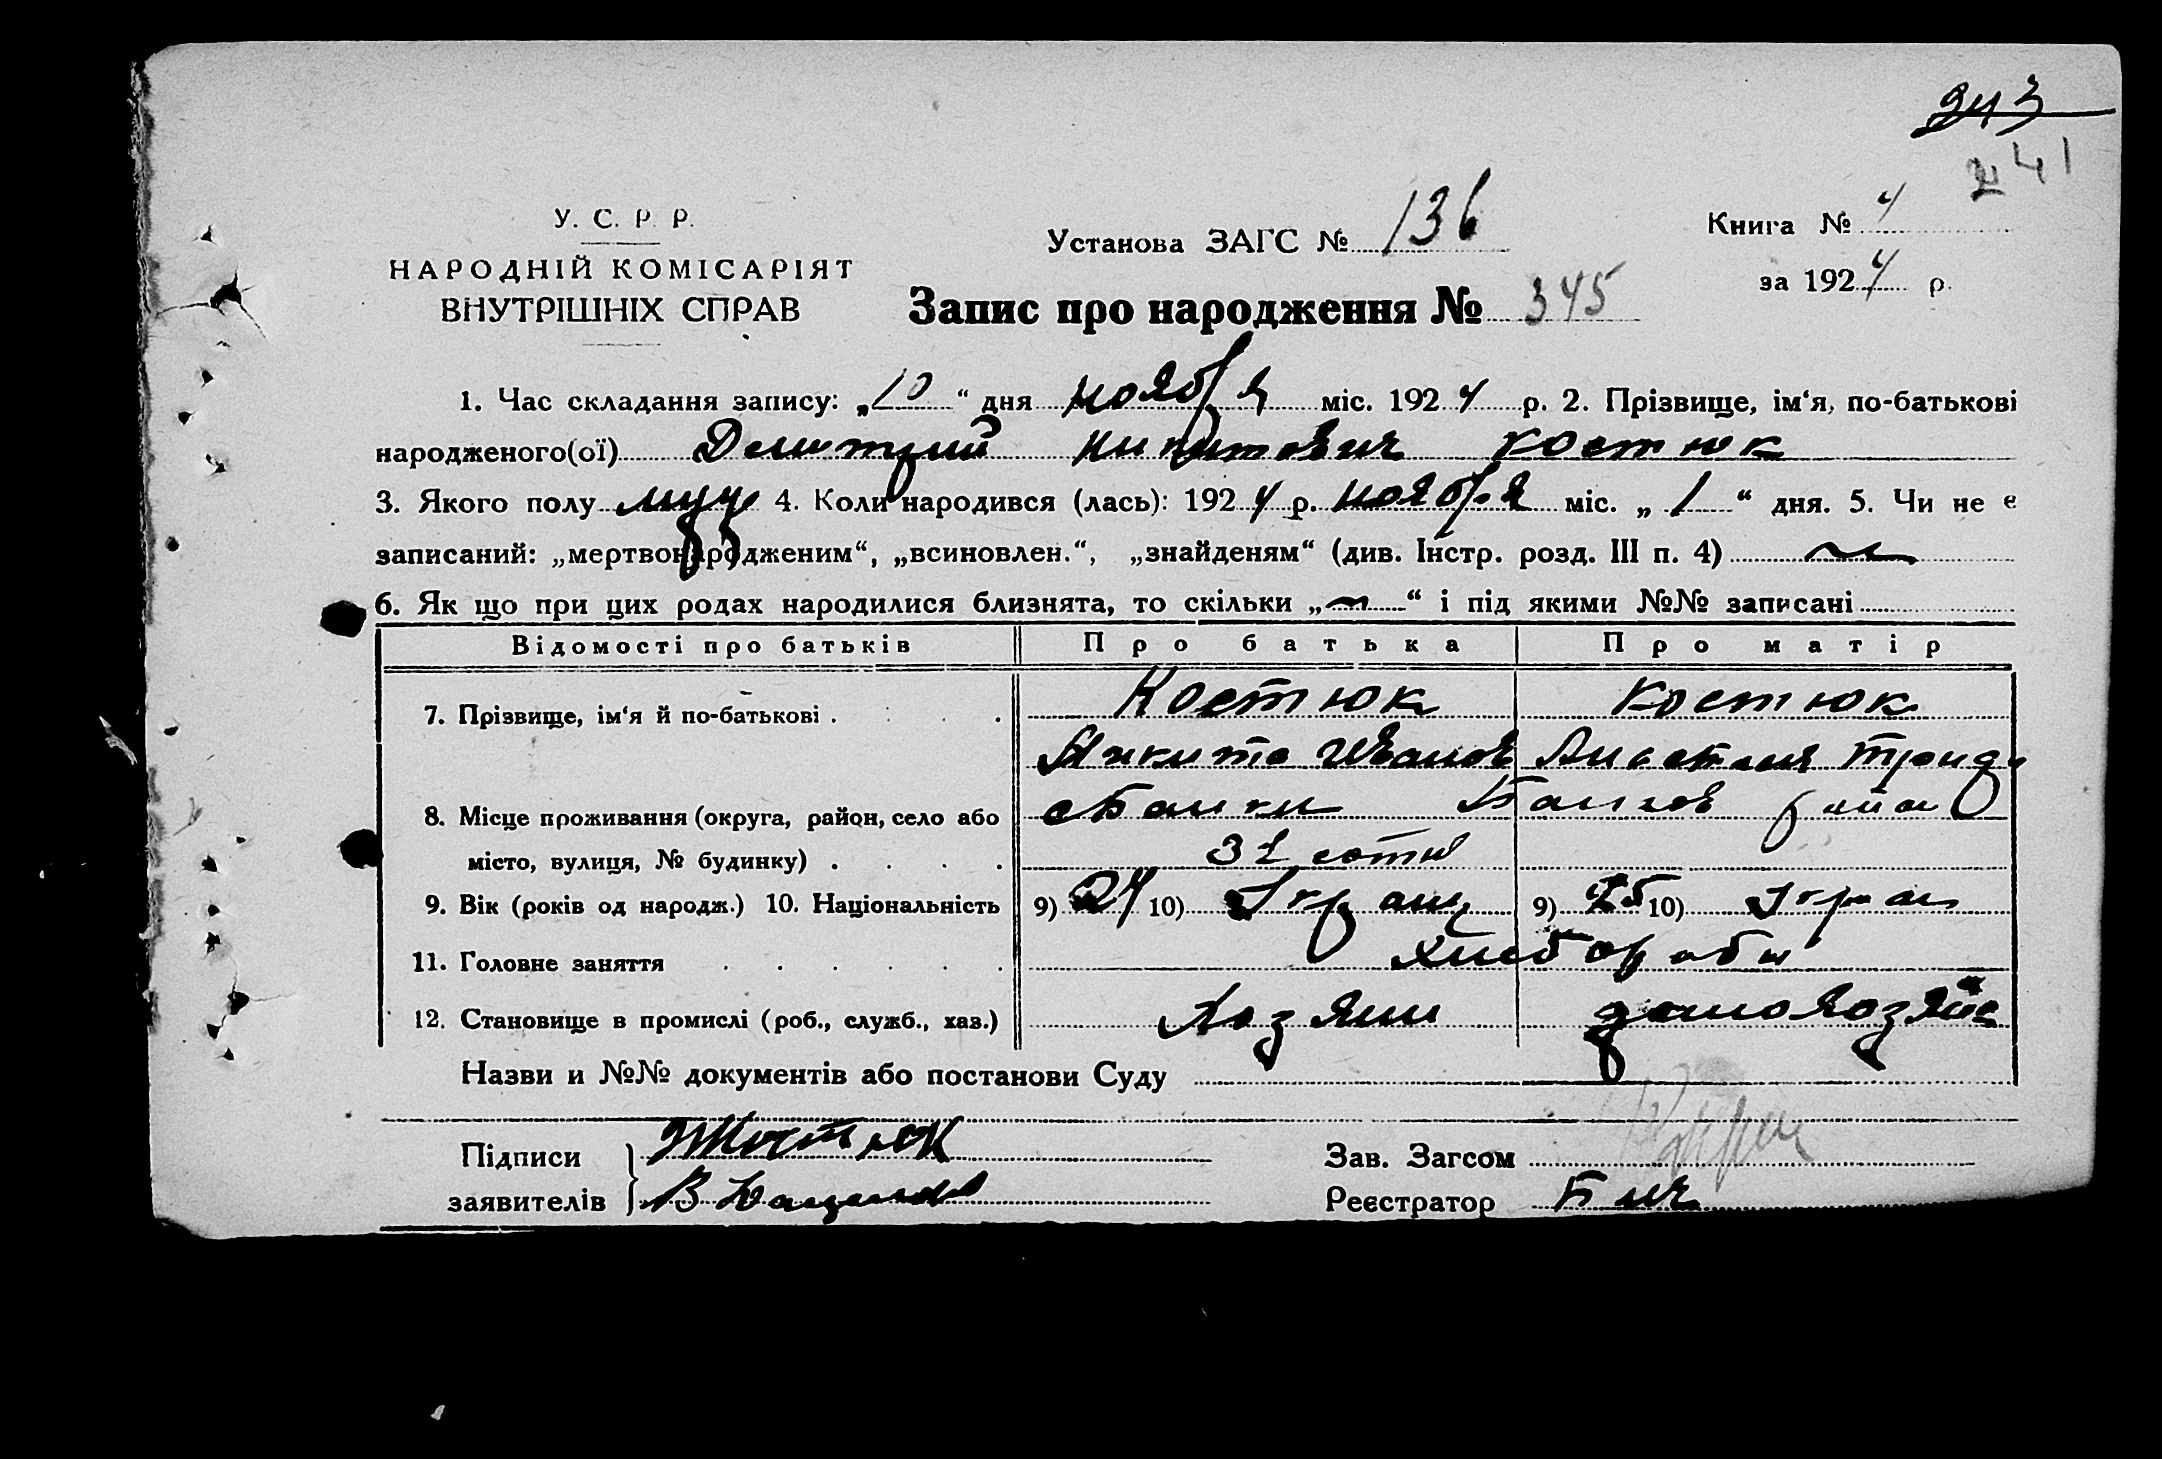 243
241
У. С. Р. Р.
НАРОДНІЙ КОМІСАРІЯТ
ВНУТРІШНІХ СПРАВ
Установа ЗАГС № 136
Книга № 4
за 1924 р.
Запис про народження № 345
1. Час складання запису: „10“ дня ноября міс. 1924 р. 2. Прізвище, ім‘я, по-батькові
народженого(ої) Дмитрий Никитович Костюк
3. Якого полу муж 4. Коли народився (лась): 1924 р. ноября міс. „1“ дня. 5. Чи не є
записаний: „мертвонародженим“, „всиновлен.“, „знайденям“ (див. Інстр. розд. III п. 4)
6. Як що при цих родах народилися близнята, то скільки „ “ і під якими №№ записані
Відомості про батьків Про батька Про матір
7. Прізвище, ім‘я й по-батькові Костюк Костюк
Никита Иванов Анастасия
8. Місце проживання (округа, район, село або с Балки Балков район
місто, вулиця, № будинку) сотня
9. Вік (років од народж.) 10. Національність 9) 24 10) Украин 9) 25 10) Украин
11. Головне заняття Хлебороб
12. Становище в промислі (роб., служб., хаз.) Хозяин домохозяйс
Назви и №№ документів або постанови Суду
Підписи Костюк Зав. Загсом
заявителів В Реєстратор Бич